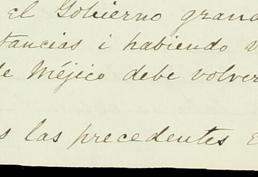 el Gobierno grand
tancias i habiendo
de Méjico debe volver
s las precedentes